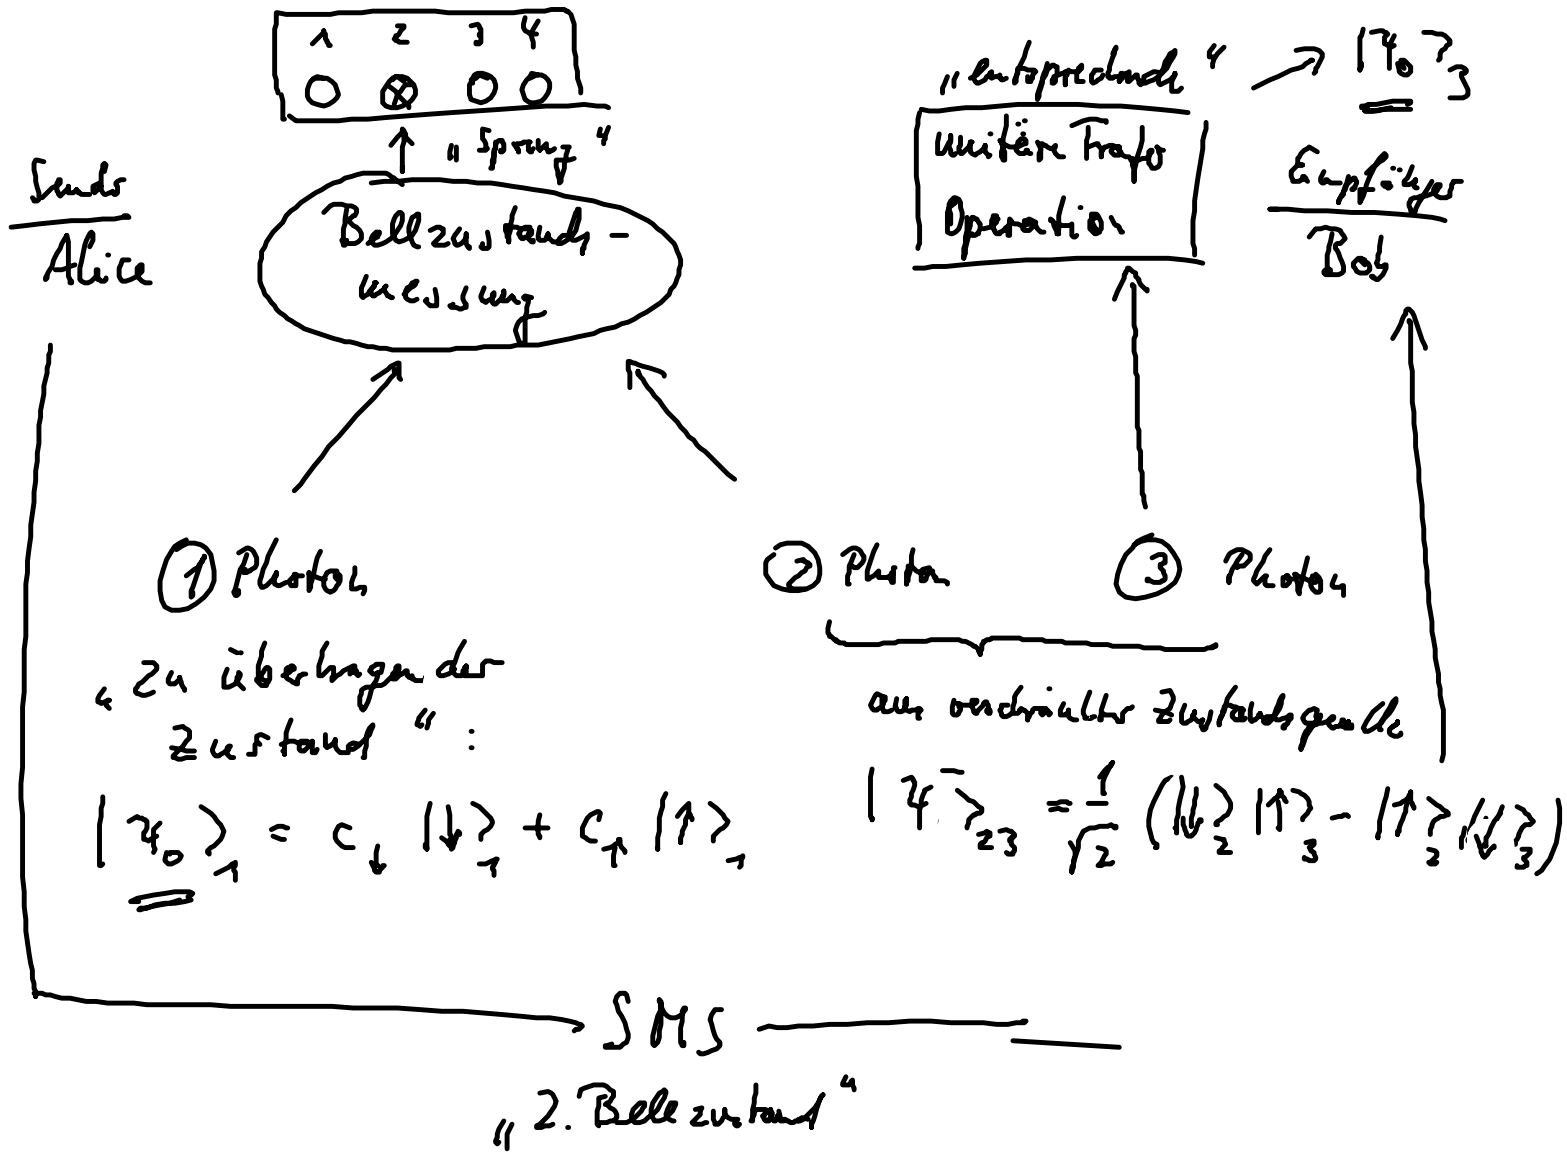 1 2 3 4
„Sprung“
Sender
Alice
Bellzustands-
messung
„entsprechende“
unitäre Trafo
Operation
|Ψ₀⟩₃
Empfänger
Bob
① Photon
② Photon
③ Photon
„Zu übertragender
Zustand“:
|Ψ₀⟩₁ = c↓ |↓⟩₁ + c↑ |↑⟩₁
aus verschränkter Zustandsquelle
|Ψ⁻⟩₂₃ = 1/√2 (|↓⟩₂ |↑⟩₃ - |↑⟩₂ |↓⟩₃)
SMS
„2. Bellzustand“